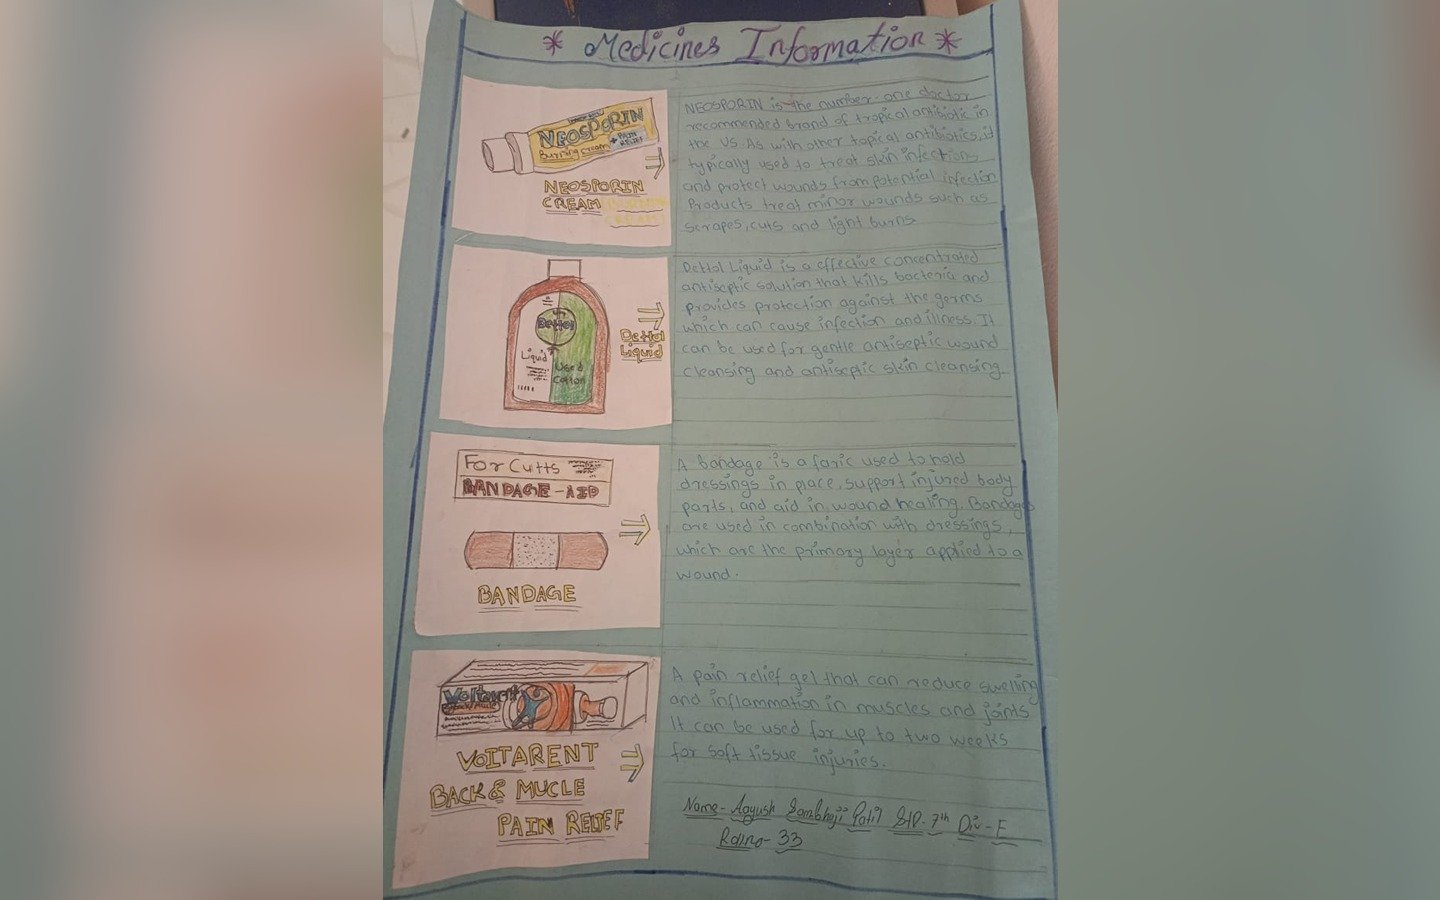 * Medicines Information *
NEOSPORIN
Burning cream + PAIN RELIEF
NEOSPORIN
CREAM
NEOSPORIN is the number-one doctor
recommended brand of tropical antibiotic in
the US. As with other topical antibiotics, it
typically used to treat skin infections
and protect wounds from potential infection
Products treat minor wounds such as
scrapes, cuts and light burns
Dettol
Liquid
Used
Cotton
Dettol
Liquid
Dettol Liquid is a effective concentrated
antiseptic solution that kills bacteria and
provides protection against the germs
which can cause infection and illness. It
can be used for gentle antiseptic wound
cleansing and antiseptic skin cleansing
For Cutts
BANDAGE-AID
BANDAGE
A bandage is a faric used to hold
dressings in place, support injured body
parts, and aid in wound healing. Bandages
are used in combination with dressings,
which are the primary layer applied to a
wound.
VOITARENT
BACK & MUCLE
PAIN RELIEF
A pain relief gel that can reduce swelling
and inflammation in muscles and joints
It can be used for up to two weeks
for soft tissue injuries.
Name- Aayush Sambhaji Patil STD- 7th Div-E
Rollno- 33